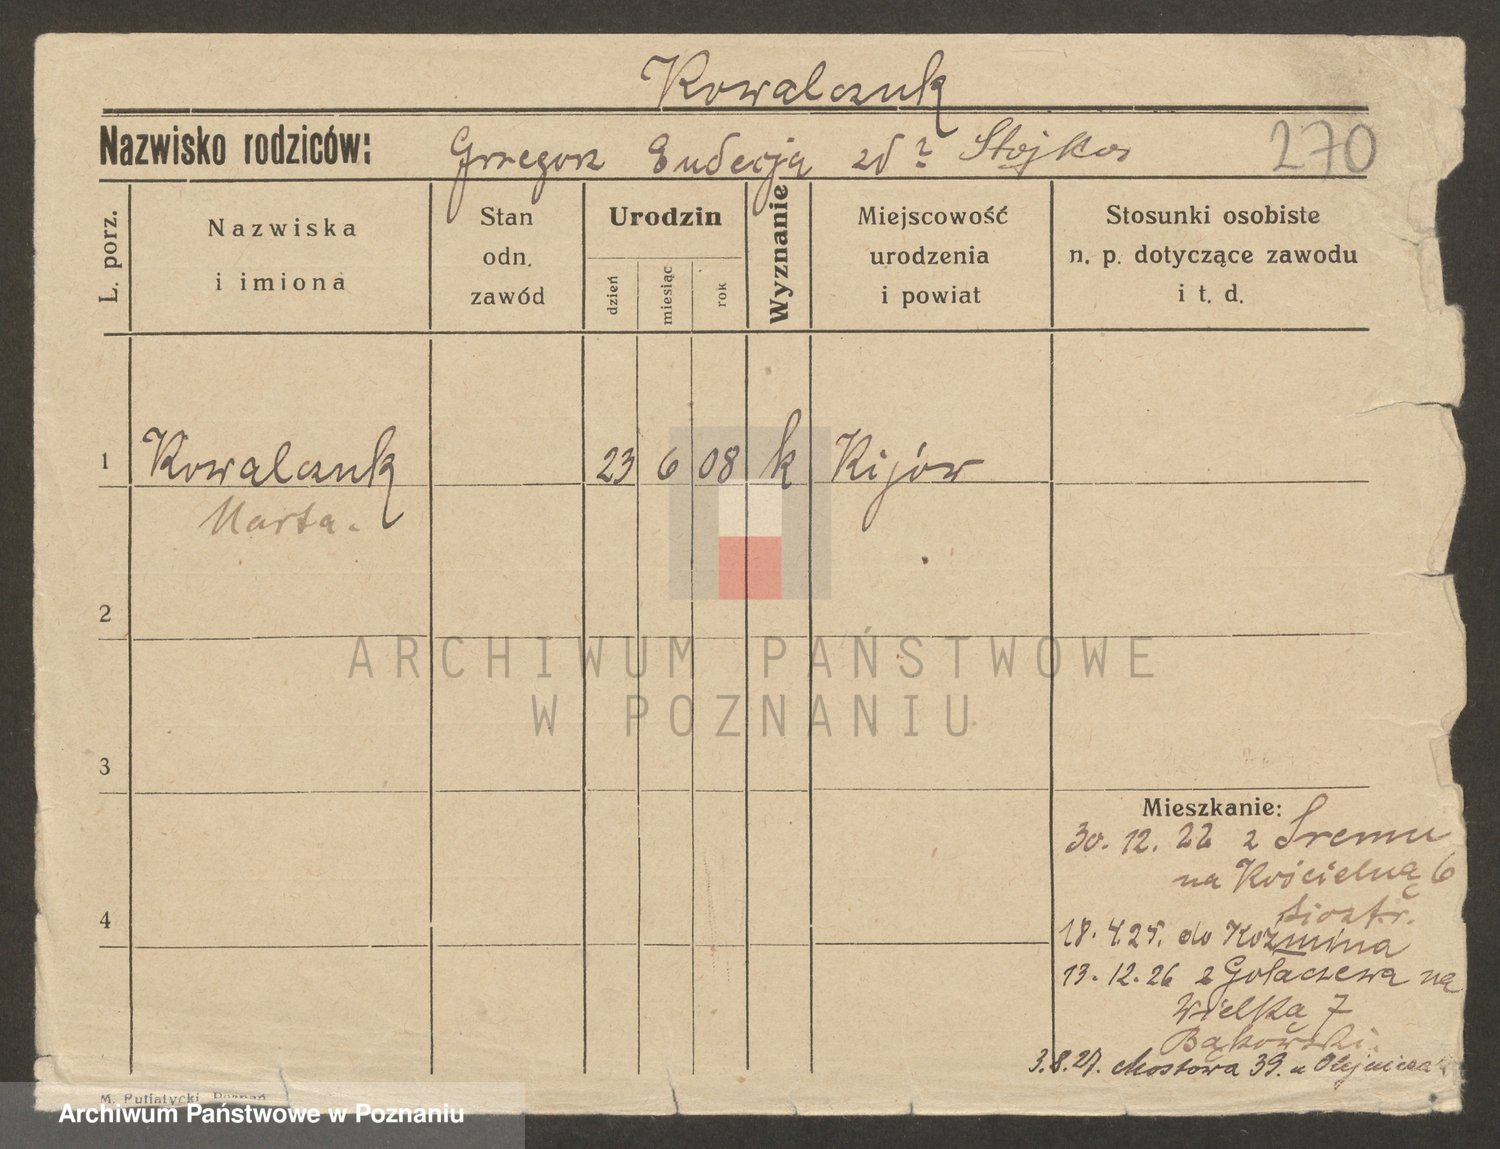 Kowalczuk
Nazwisko rodziców: Grzegorz Eudecja zd ? Stojko
270
L. porz.
Nazwiska
i imiona
Stan
odn.
zawód
Urodzin
dzień
miesiąc
rok
Wyznanie
Miejscowość
urodzenia
i powiat
Stosunki osobiste
n. p. dotyczące zawodu
i t. d.
1 Kowalczuk 23 6 08 k Kijów
Marta.
2
3
4
Mieszkanie:
30. 12. 22 z Śremu
na Kościelną 6
siostr.
18. 4. 25. do Koźmina
13. 12. 26 z Gołaczewa na
Wielka 7
Bąkowski.
3. 8. 27. Mostowa 39. u
ARCHIWUM PAŃSTWOWE
W POZNANIU
M. Putiatycki, Poznań
Archiwum Państwowe w Poznaniu